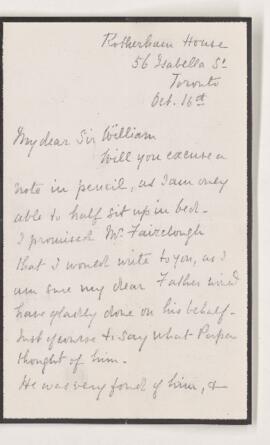 Rotherham House
56 Isabella St
Toronto
Oct. 16th
My dear Sir William
Will you excuse a
note in pencil, as I am only
able to half sit up in bed -
I promised Mr. Fairclough
that I would write to you, as I
am sure my dear Father would
have gladly done on his behalf -
Just of course to say what Papa
thought of him -
He was very fond of him, &